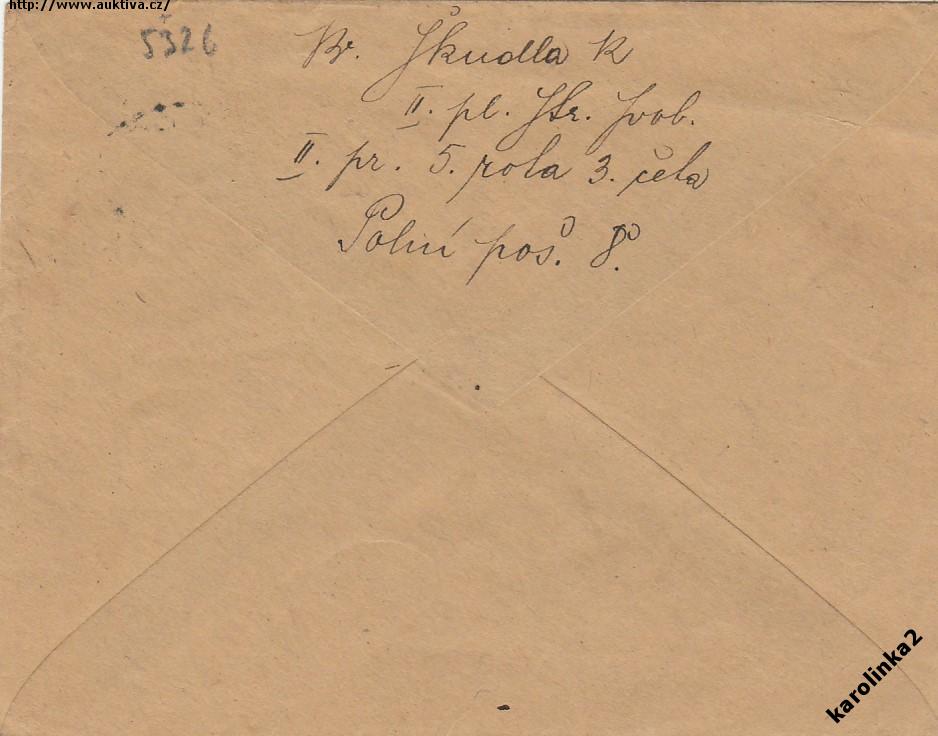 http://www.auktiva.cz/
5326
Br. Škudla R
II. pl. Str. Svob.
II. pr. 5. rota 3. četa
Polní poš. 8.
karolinka2